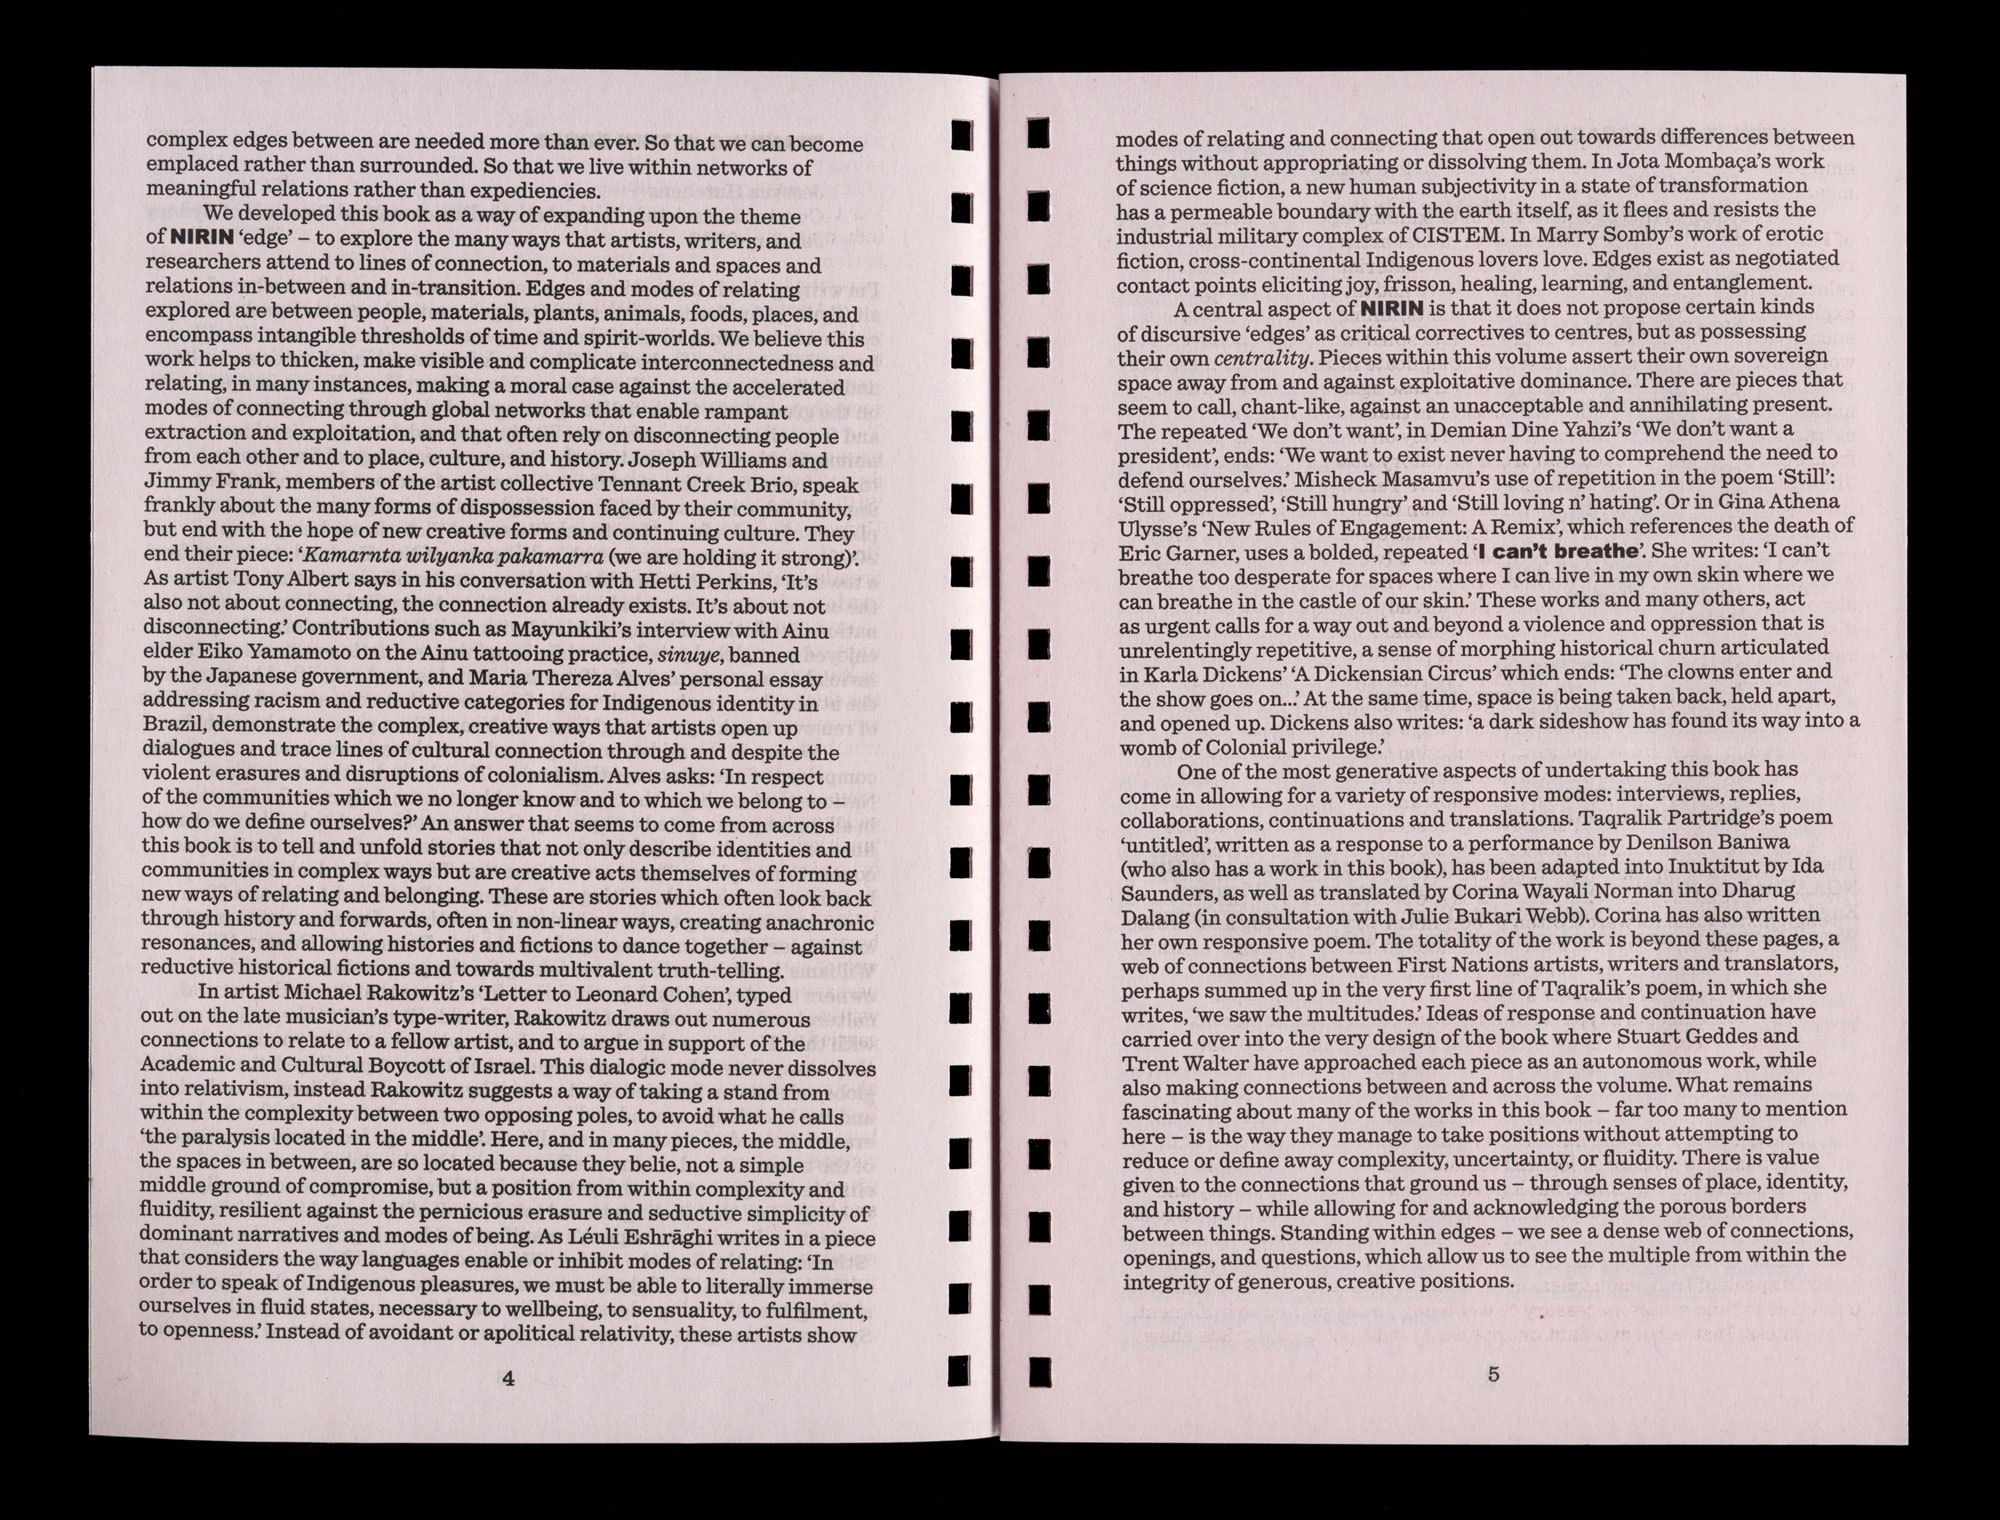 complex edges between are needed more than ever. So that we can become
emplaced rather than surrounded. So that we live within networks of
meaningful relations rather than expediencies.
We developed this book as a way of expanding upon the theme
of NIRIN ‘edge’ – to explore the many ways that artists, writers, and
researchers attend to lines of connection, to materials and spaces and
relations in-between and in-transition. Edges and modes of relating
explored are between people, materials, plants, animals, foods, places, and
encompass intangible thresholds of time and spirit-worlds. We believe this
work helps to thicken, make visible and complicate interconnectedness and
relating, in many instances, making a moral case against the accelerated
modes of connecting through global networks that enable rampant
extraction and exploitation, and that often rely on disconnecting people
from each other and to place, culture, and history. Joseph Williams and
Jimmy Frank, members of the artist collective Tennant Creek Brio, speak
frankly about the many forms of dispossession faced by their community,
but end with the hope of new creative forms and continuing culture. They
end their piece: ‘Kamarnta wilyanka pakamarra (we are holding it strong)’.
As artist Tony Albert says in his conversation with Hetti Perkins, ‘It’s
also not about connecting, the connection already exists. It’s about not
disconnecting.’ Contributions such as Mayunkiki’s interview with Ainu
elder Eiko Yamamoto on the Ainu tattooing practice, sinuye, banned
by the Japanese government, and Maria Thereza Alves’ personal essay
addressing racism and reductive categories for Indigenous identity in
Brazil, demonstrate the complex, creative ways that artists open up
dialogues and trace lines of cultural connection through and despite the
violent erasures and disruptions of colonialism. Alves asks: ‘In respect
of the communities which we no longer know and to which we belong to –
how do we define ourselves?’ An answer that seems to come from across
this book is to tell and unfold stories that not only describe identities and
communities in complex ways but are creative acts themselves of forming
new ways of relating and belonging. These are stories which often look back
through history and forwards, often in non-linear ways, creating anachronic
resonances, and allowing histories and fictions to dance together – against
reductive historical fictions and towards multivalent truth-telling.
In artist Michael Rakowitz’s ‘Letter to Leonard Cohen’, typed
out on the late musician’s type-writer, Rakowitz draws out numerous
connections to relate to a fellow artist, and to argue in support of the
Academic and Cultural Boycott of Israel. This dialogic mode never dissolves
into relativism, instead Rakowitz suggests a way of taking a stand from
within the complexity between two opposing poles, to avoid what he calls
‘the paralysis located in the middle’. Here, and in many pieces, the middle,
the spaces in between, are so located because they belie, not a simple
middle ground of compromise, but a position from within complexity and
fluidity, resilient against the pernicious erasure and seductive simplicity of
dominant narratives and modes of being. As Léuli Eshrāghi writes in a piece
that considers the way languages enable or inhibit modes of relating: ‘In
order to speak of Indigenous pleasures, we must be able to literally immerse
ourselves in fluid states, necessary to wellbeing, to sensuality, to fulfilment,
to openness.’ Instead of avoidant or apolitical relativity, these artists show
4
modes of relating and connecting that open out towards differences between
things without appropriating or dissolving them. In Jota Mombaça’s work
of science fiction, a new human subjectivity in a state of transformation
has a permeable boundary with the earth itself, as it flees and resists the
industrial military complex of CISTEM. In Marry Somby’s work of erotic
fiction, cross-continental Indigenous lovers love. Edges exist as negotiated
contact points eliciting joy, frisson, healing, learning, and entanglement.
A central aspect of NIRIN is that it does not propose certain kinds
of discursive ‘edges’ as critical correctives to centres, but as possessing
their own centrality. Pieces within this volume assert their own sovereign
space away from and against exploitative dominance. There are pieces that
seem to call, chant-like, against an unacceptable and annihilating present.
The repeated ‘We don’t want’, in Demian Dine Yahzi’s ‘We don’t want a
president’, ends: ‘We want to exist never having to comprehend the need to
defend ourselves.’ Misheck Masamvu’s use of repetition in the poem ‘Still’:
‘Still oppressed’, ‘Still hungry’ and ‘Still loving n’ hating’. Or in Gina Athena
Ulysse’s ‘New Rules of Engagement: A Remix’, which references the death of
Eric Garner, uses a bolded, repeated ‘I can’t breathe’. She writes: ‘I can’t
breathe too desperate for spaces where I can live in my own skin where we
can breathe in the castle of our skin.’ These works and many others, act
as urgent calls for a way out and beyond a violence and oppression that is
unrelentingly repetitive, a sense of morphing historical churn articulated
in Karla Dickens’ ‘A Dickensian Circus’ which ends: ‘The clowns enter and
the show goes on...’ At the same time, space is being taken back, held apart,
and opened up. Dickens also writes: ‘a dark sideshow has found its way into a
womb of Colonial privilege.’
One of the most generative aspects of undertaking this book has
come in allowing for a variety of responsive modes: interviews, replies,
collaborations, continuations and translations. Taqralik Partridge’s poem
‘untitled’, written as a response to a performance by Denilson Baniwa
(who also has a work in this book), has been adapted into Inuktitut by Ida
Saunders, as well as translated by Corina Wayali Norman into Dharug
Dalang (in consultation with Julie Bukari Webb). Corina has also written
her own responsive poem. The totality of the work is beyond these pages, a
web of connections between First Nations artists, writers and translators,
perhaps summed up in the very first line of Taqralik’s poem, in which she
writes, ‘we saw the multitudes.’ Ideas of response and continuation have
carried over into the very design of the book where Stuart Geddes and
Trent Walter have approached each piece as an autonomous work, while
also making connections between and across the volume. What remains
fascinating about many of the works in this book – far too many to mention
here – is the way they manage to take positions without attempting to
reduce or define away complexity, uncertainty, or fluidity. There is value
given to the connections that ground us – through senses of place, identity,
and history – while allowing for and acknowledging the porous borders
between things. Standing within edges – we see a dense web of connections,
openings, and questions, which allow us to see the multiple from within the
integrity of generous, creative positions.
5